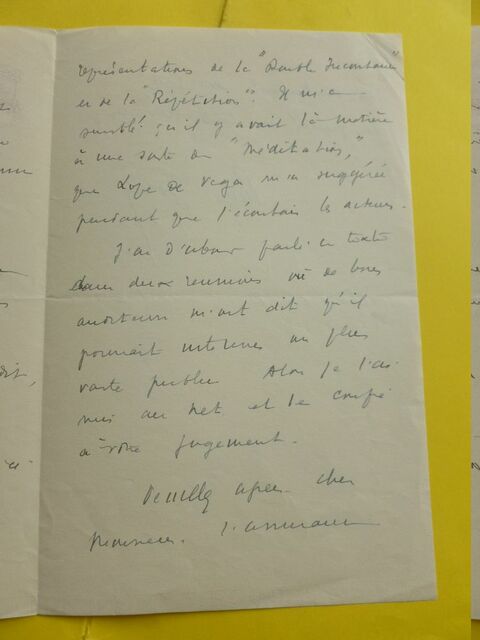 représentations de la "Double Inconstance"
et de la "Répétition". Il m'a
semblé qu'il y avait là matière
à une sorte de "Méditation,"
que Lope de Vega m'a suggérée
pendant que j'écoutais les acteurs.
J'ai d'abord parlé ce texte
dans deux réunions où de bons
auditeurs m'ont dit qu'il
pourrait intéresser un plus
vaste public. Alors je l'ai
mis au net et le confie
à votre jugement.
Veuillez agréer cher
Monsieur. l'assurance